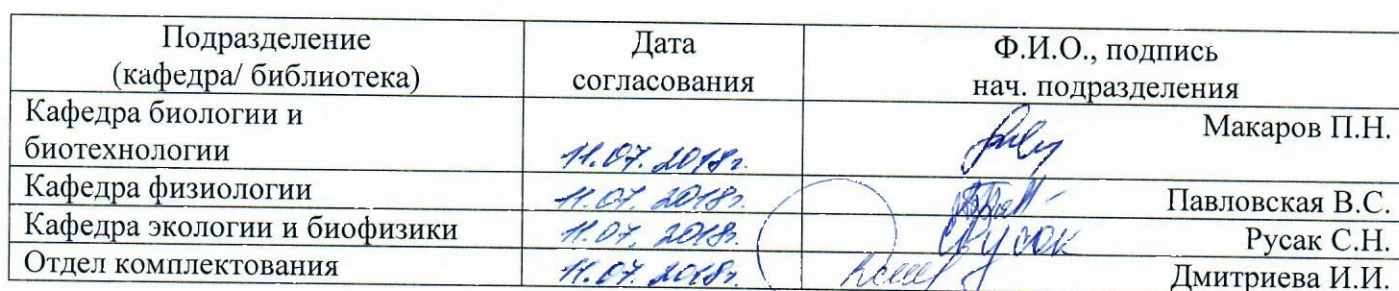 Подразделение
(кафедра/ библиотека)
Дата
согласования
Ф.И.О., подпись
нач. подразделения
Кафедра биологии и
биотехнологии
11.07.2018г.
Макаров П.Н.
Кафедра физиологии
11.07.2018г.
Павловская В.С.
Кафедра экологии и биофизики
11.07.2018г.
Русак С.Н.
Отдел комплектования
11.07.2018г.
Дмитриева И.И.